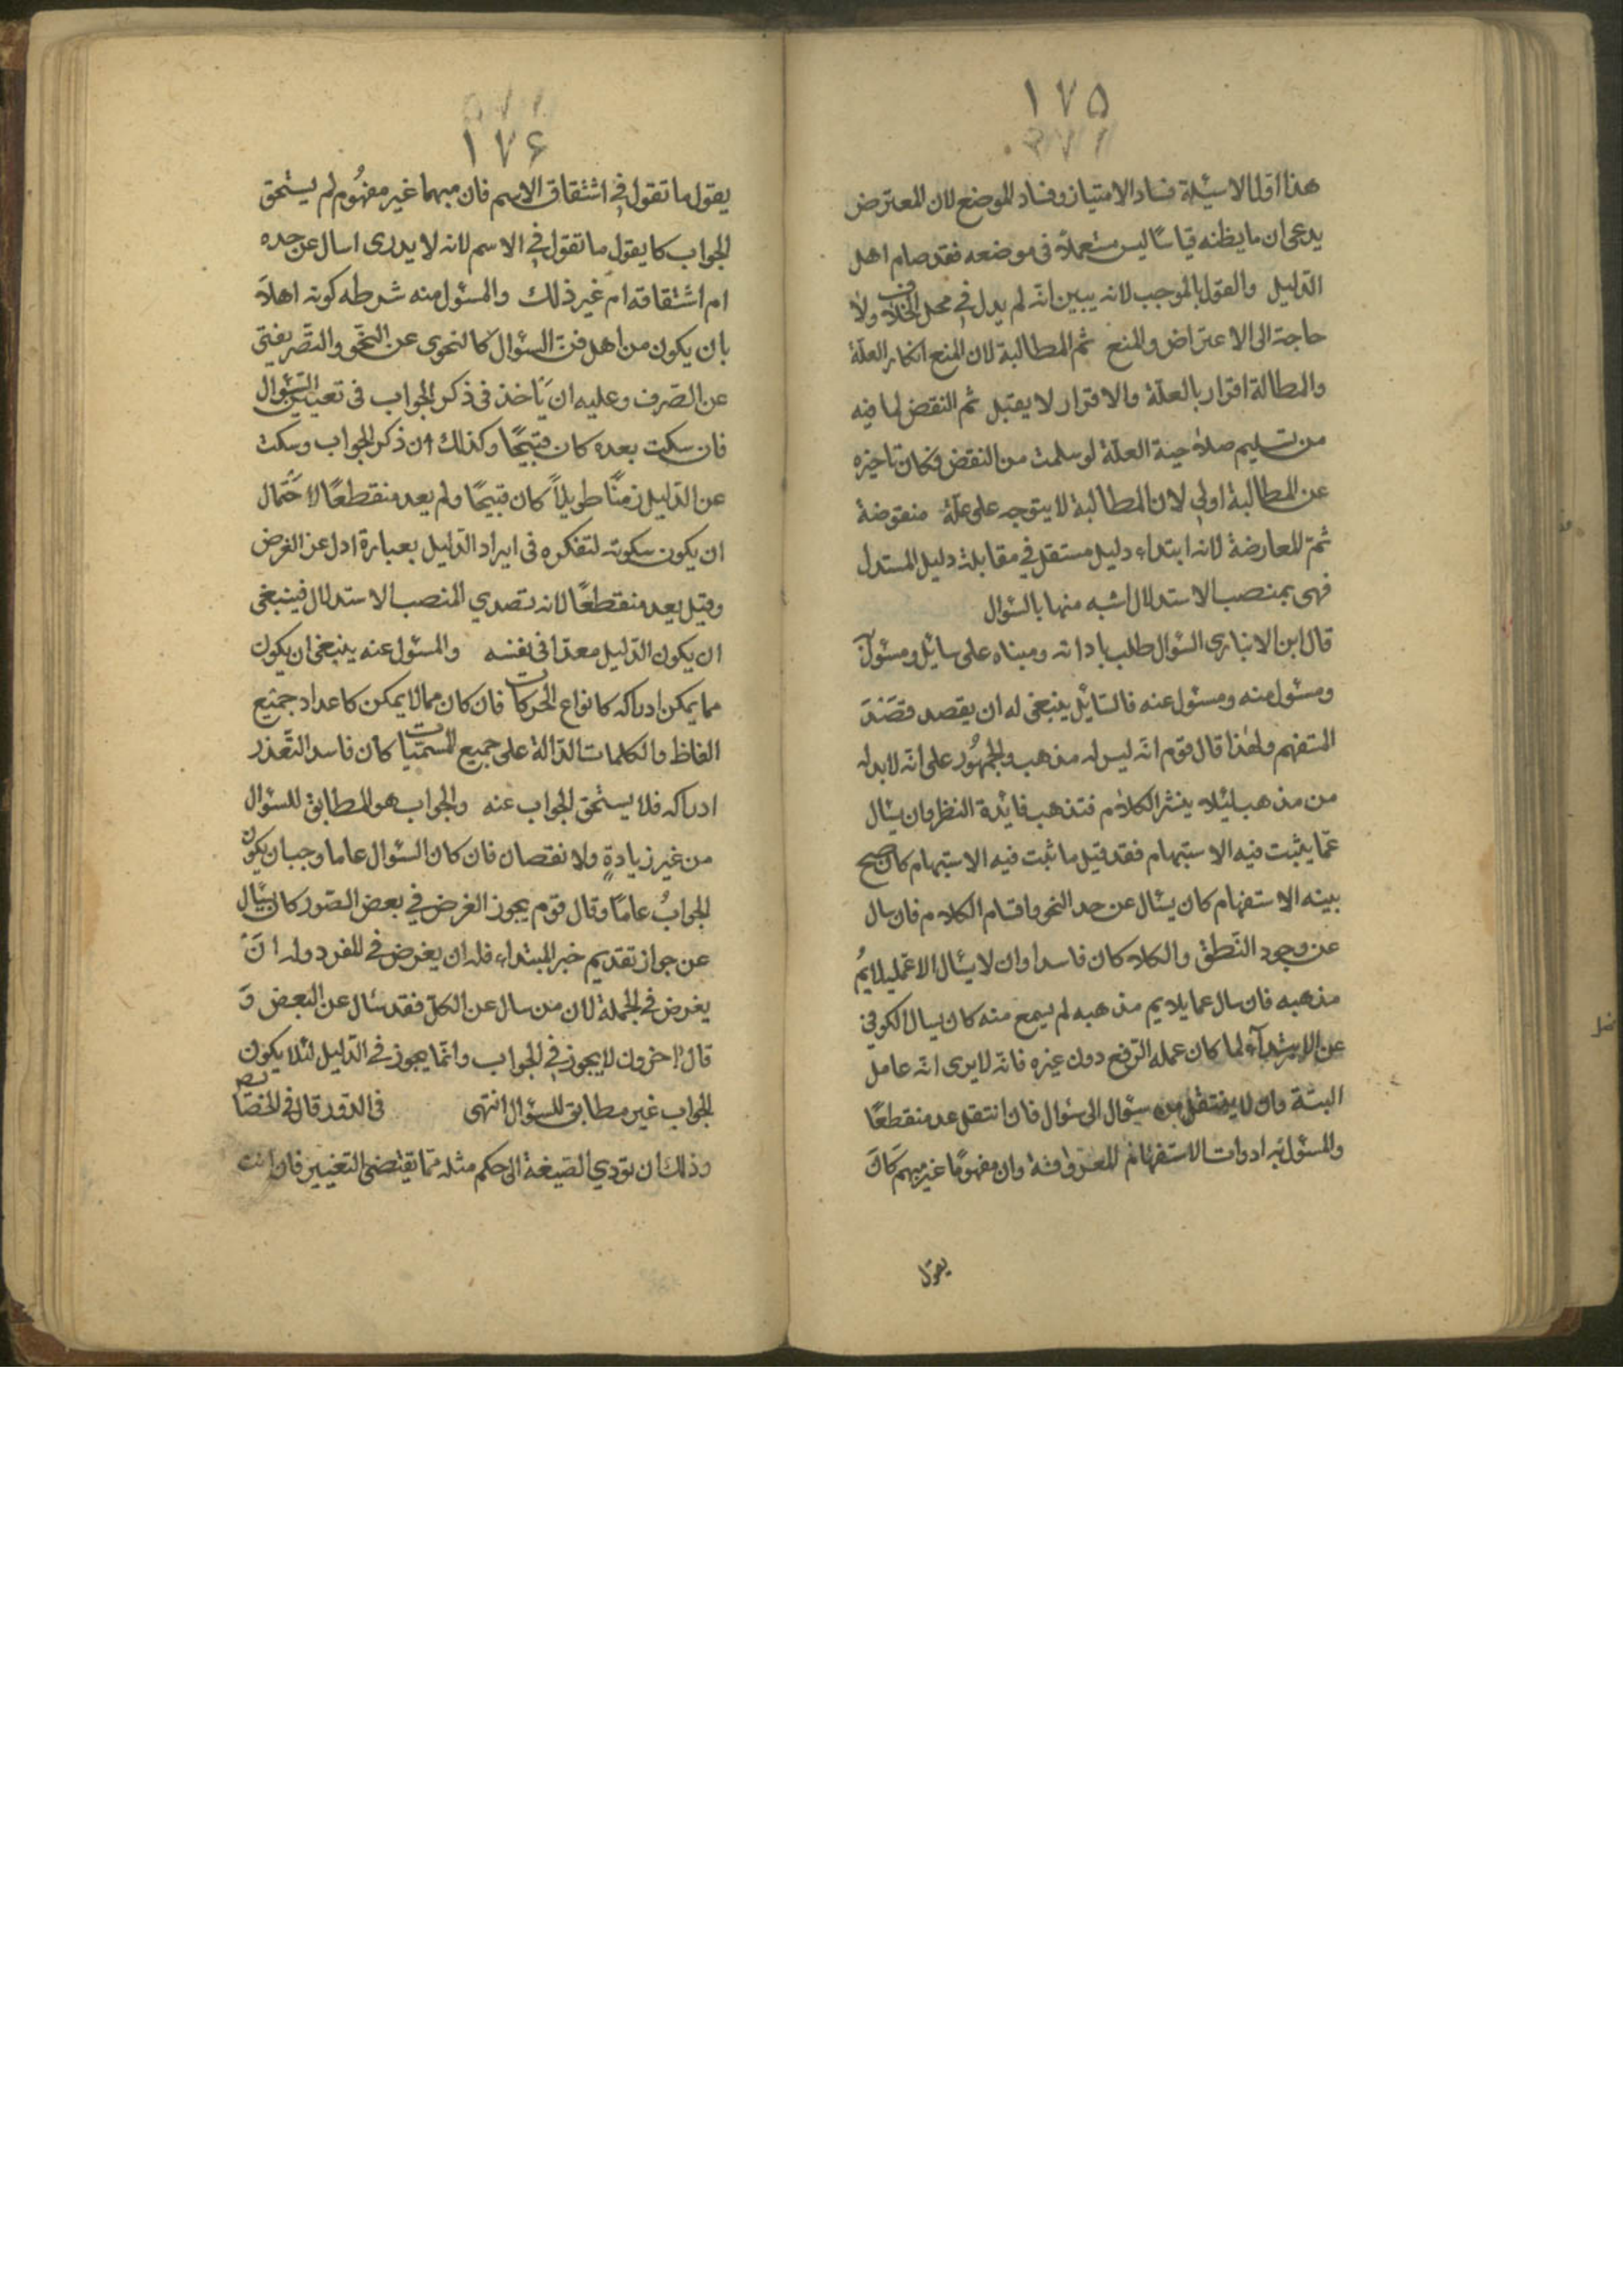 ١٧٥
هذا اول الاسئلة فساد الامتياز وفساد الموضع لان المعترض
يدعى ان ما يظنه قياسًا ليس مستعملا فى موضعه فقد صام اهل
الدليل والقول بالموجب لانه يبين انه لم يدل في محل الخلاف ولا
حاجة الى الاعتراض والمنع ثم المطالبة لان المنع انكار العلّة
والمطالة اقرار بالعلّة والاقرار لا يقبل ثم النقض لما فيه
من تسليم صلاحية العلّة لو سلمت من النقض فكان تاخيره
عن المطالبة اولى لان المطالبة لا يتوجه على علّة منقوضة
ثمّ المعارضة لانه ابتداء دليل مستقل في مقابلة دليل المستدل
فهى بمنصب الاستدلال اشبه منها بالسؤال
قال ابن الانبارى السؤال طلب باداته ومبناه على سائل ومسئول
ومسئول منه ومسئول عنه فالسائل ينبغى له ان يقصد قصد
المتفهم ولهذا قال قوم انّه ليس له مذهب والجمهور على انّه لابد له
من مذهب ليلا ينشر الكلام فتذهب فائدة النظر وان يسٔال
عمّا يثبت فيه الاستبهام فقد قيل ما ثبت فيه الاستبهام كان صح
بينه الاستفهام كان يسٔال عن حد النحو واقسام الكلام فان سال
عن وجود النّطق والكلام كان فاسدا وان لا يسٔال الا عمّا يلايم
مذهبه فان سال عما يلايم مذهبه لم يسمع منه كان يسال الكوفي
عن الابتداء لما كان عمله الرّفع دون غيره فانّه لا يرى انّه عامل
البتّة وان لا ينتقل من سؤال الى سؤال فان انتقل عد منقطعًا
والمسئول به ادوات الاستفهام المعروفة وان مفهومًا غير مبهم كان
يقول
١٧۶
يقول ما تقول في اشتقاق الاسم فان مبهما غير مفهوم لم يستحق
الجواب كا يقول ما تقول في الاسم لانه لا يدرى اسال عن حده
ام اشتقاقه ام غير ذلك والمسئول منه شرطه كونه اهلا
بان يكون من اهل فنّ السؤال كالنحوى عن النحو والتصريفى
عن الصّرف وعليه ان ياخذ فى ذكر الجواب فى تعيين السؤال
فان سكت بعده كان قبيحًا وكذلك ان ذكر الجواب وسكت
عن الدّليل زمنًا طويلاً كان قبيحًا ولم يعد منقطعًا لاحتمال
ان يكون سكوته لتفكره فى ايراد الدّليل بعبارة ادل عن الغرض
وقيل يعد منقطعًا لانه تصدي المنصب الاستدلال فينبغى
ان يكون الدّليل معدّا فى نفسه والمسئول عنه ينبغى ان يكون
مما يمكن ادراكه كانواع الحركات فان كان مما لا يمكن كاعداد جميع
الفاظ والكلمات الدّالة على جميع المسمّيات كان فاسد التّعذر
ادراكه فلا يستحق الجواب عنه والجواب هو المطابق للسؤال
من غير زيادةٍ ولا نقصان فان كان السؤال عاما وجب ان يكون
الجوابُ عامًا وقال قوم يجوز الغرض في بعض الصّور كان يسٔال
عن جواز تقديم خبر المبتداء فله ان يغرض في المفرد وله انّ
يغرض في الجملة لان من سال عن الكلّ فقد سٔال عن البعض و
قال اخرون لا يجوز في الجواب وانّما يجوز في الدّليل لئلا يكون
الجواب غير مطابق للسؤال انتهى فى الدّور قال في الخصايص
وذلك ان تودي الصّيغة الى حكم مثله ممّا يقتضى التغيير فان انت